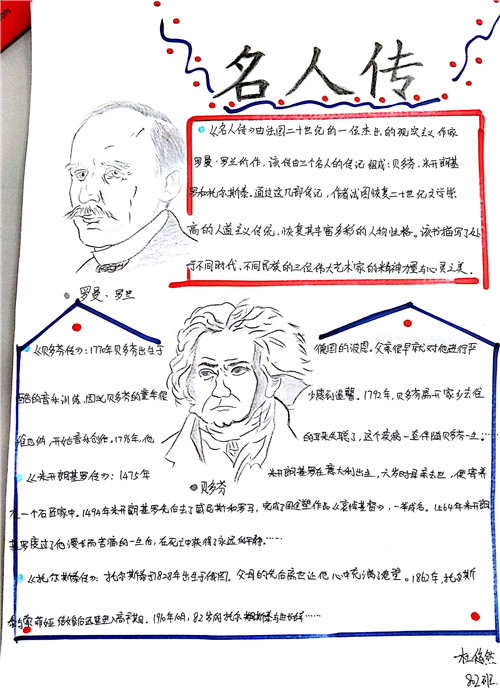 名人传
《名人传》由法国二十世纪的一位杰出的现实主义作家
罗曼·罗兰所作，该传由三个名人的传记组成：贝多芬、米开朗基
罗和托尔斯泰。通过这几部传记，作者试图恢复二十世纪文学崇
高的人道主义传统，恢复其丰富多彩的人物性格。该书描写了处
于不同时代、不同民族的三位伟大艺术家的精神力量与心灵之美。
罗曼·罗兰
《贝多芬传》：1770年贝多芬出生于 德国的波恩。父亲很早就对他进行严
酷的音乐训练，因此贝多芬的童年很 少感到温馨。1792年，贝多芬离开家乡去往
维也纳，开始音乐创作。1798年，他 的耳朵失聪了，这个疾病一直伴随贝多芬一生……
贝多芬
《米开朗基罗传》：1475年 米开朗基罗在意大利出生，六岁时母亲去世，他寄养
在一个石匠家中。1494年米开朗基罗先后去了威尼斯和罗马，完成了圆雕塑作品《哀悼基督》，一举成名。1564年米开朗
基罗度过了他漫长而苦痛的一生后，在死亡中获得了永远的平静……
《托尔斯泰传》：托尔斯泰于1828年出生于俄国。父母的先后离世让他心中充满了绝望。1862年，托尔斯
泰与索菲娅结婚后这里进入高产期。1910年10月，82岁的托尔斯泰与世长辞……
杜俊然
802班